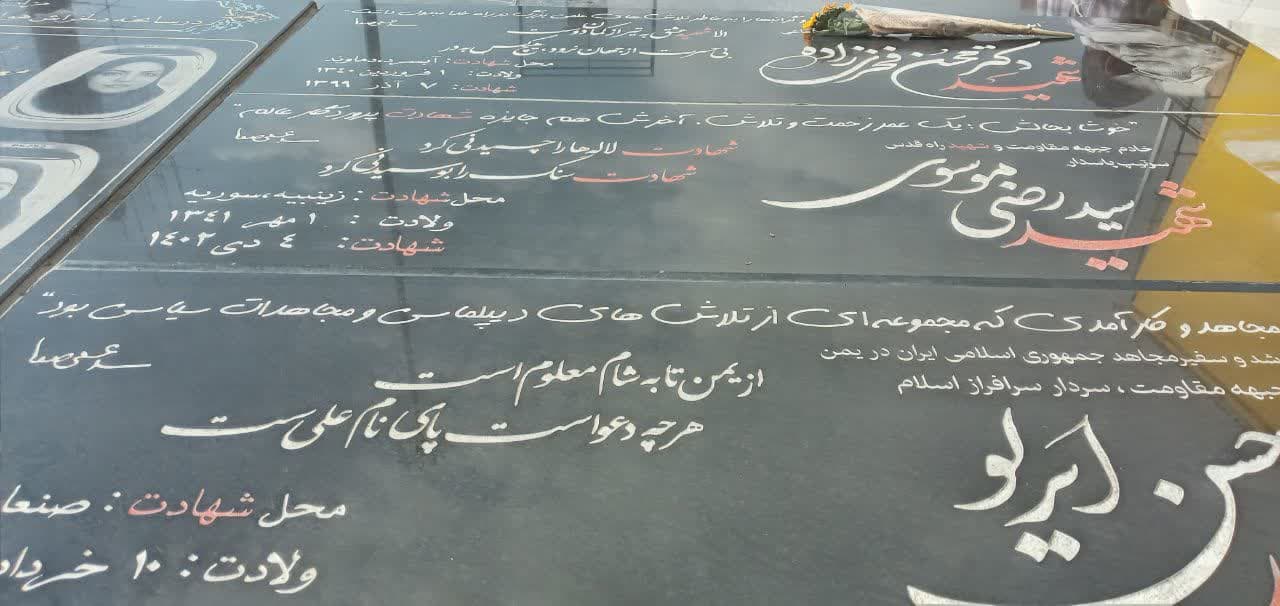 شهید
دکتر محسن فخری‌زاده
محل شهادت: آبسرد دماوند
ولادت: ۱ فروردین ۱۳۴۰
شهادت: ۷ آذر ۱۳۹۹
"خوشا بحالش؛ یک عمر زحمت و تلاش. آخرش هم جایزه شهادت
خادم جبهه مقاومت و شهید راه قدس
سرتیپ پاسدار
شهید
سید رضی موسوی
شهادت لاله‌ها را چیدنی کرد
شهادت سنگ را بوسیدنی کرد
محل شهادت: زینبیه، سوریه
ولادت: ۱ مهر ۱۳۴۱
شهادت: ۴ دی ۱۴۰۲
مجاهد و کارآمدی که مجموعه‌ای از تلاش های دیپلماسی و مجاهدات سیاسی بود"
شد و سفیر مجاهد جمهوری اسلامی ایران در یمن
جبهه مقاومت، سردار سرافراز اسلام
حسن ایرلو
از یمن تا به شام معلوم است
هر چه دعواست پای نام علی ست
محل شهادت: صنعا
ولادت: ۱۰ خرداد